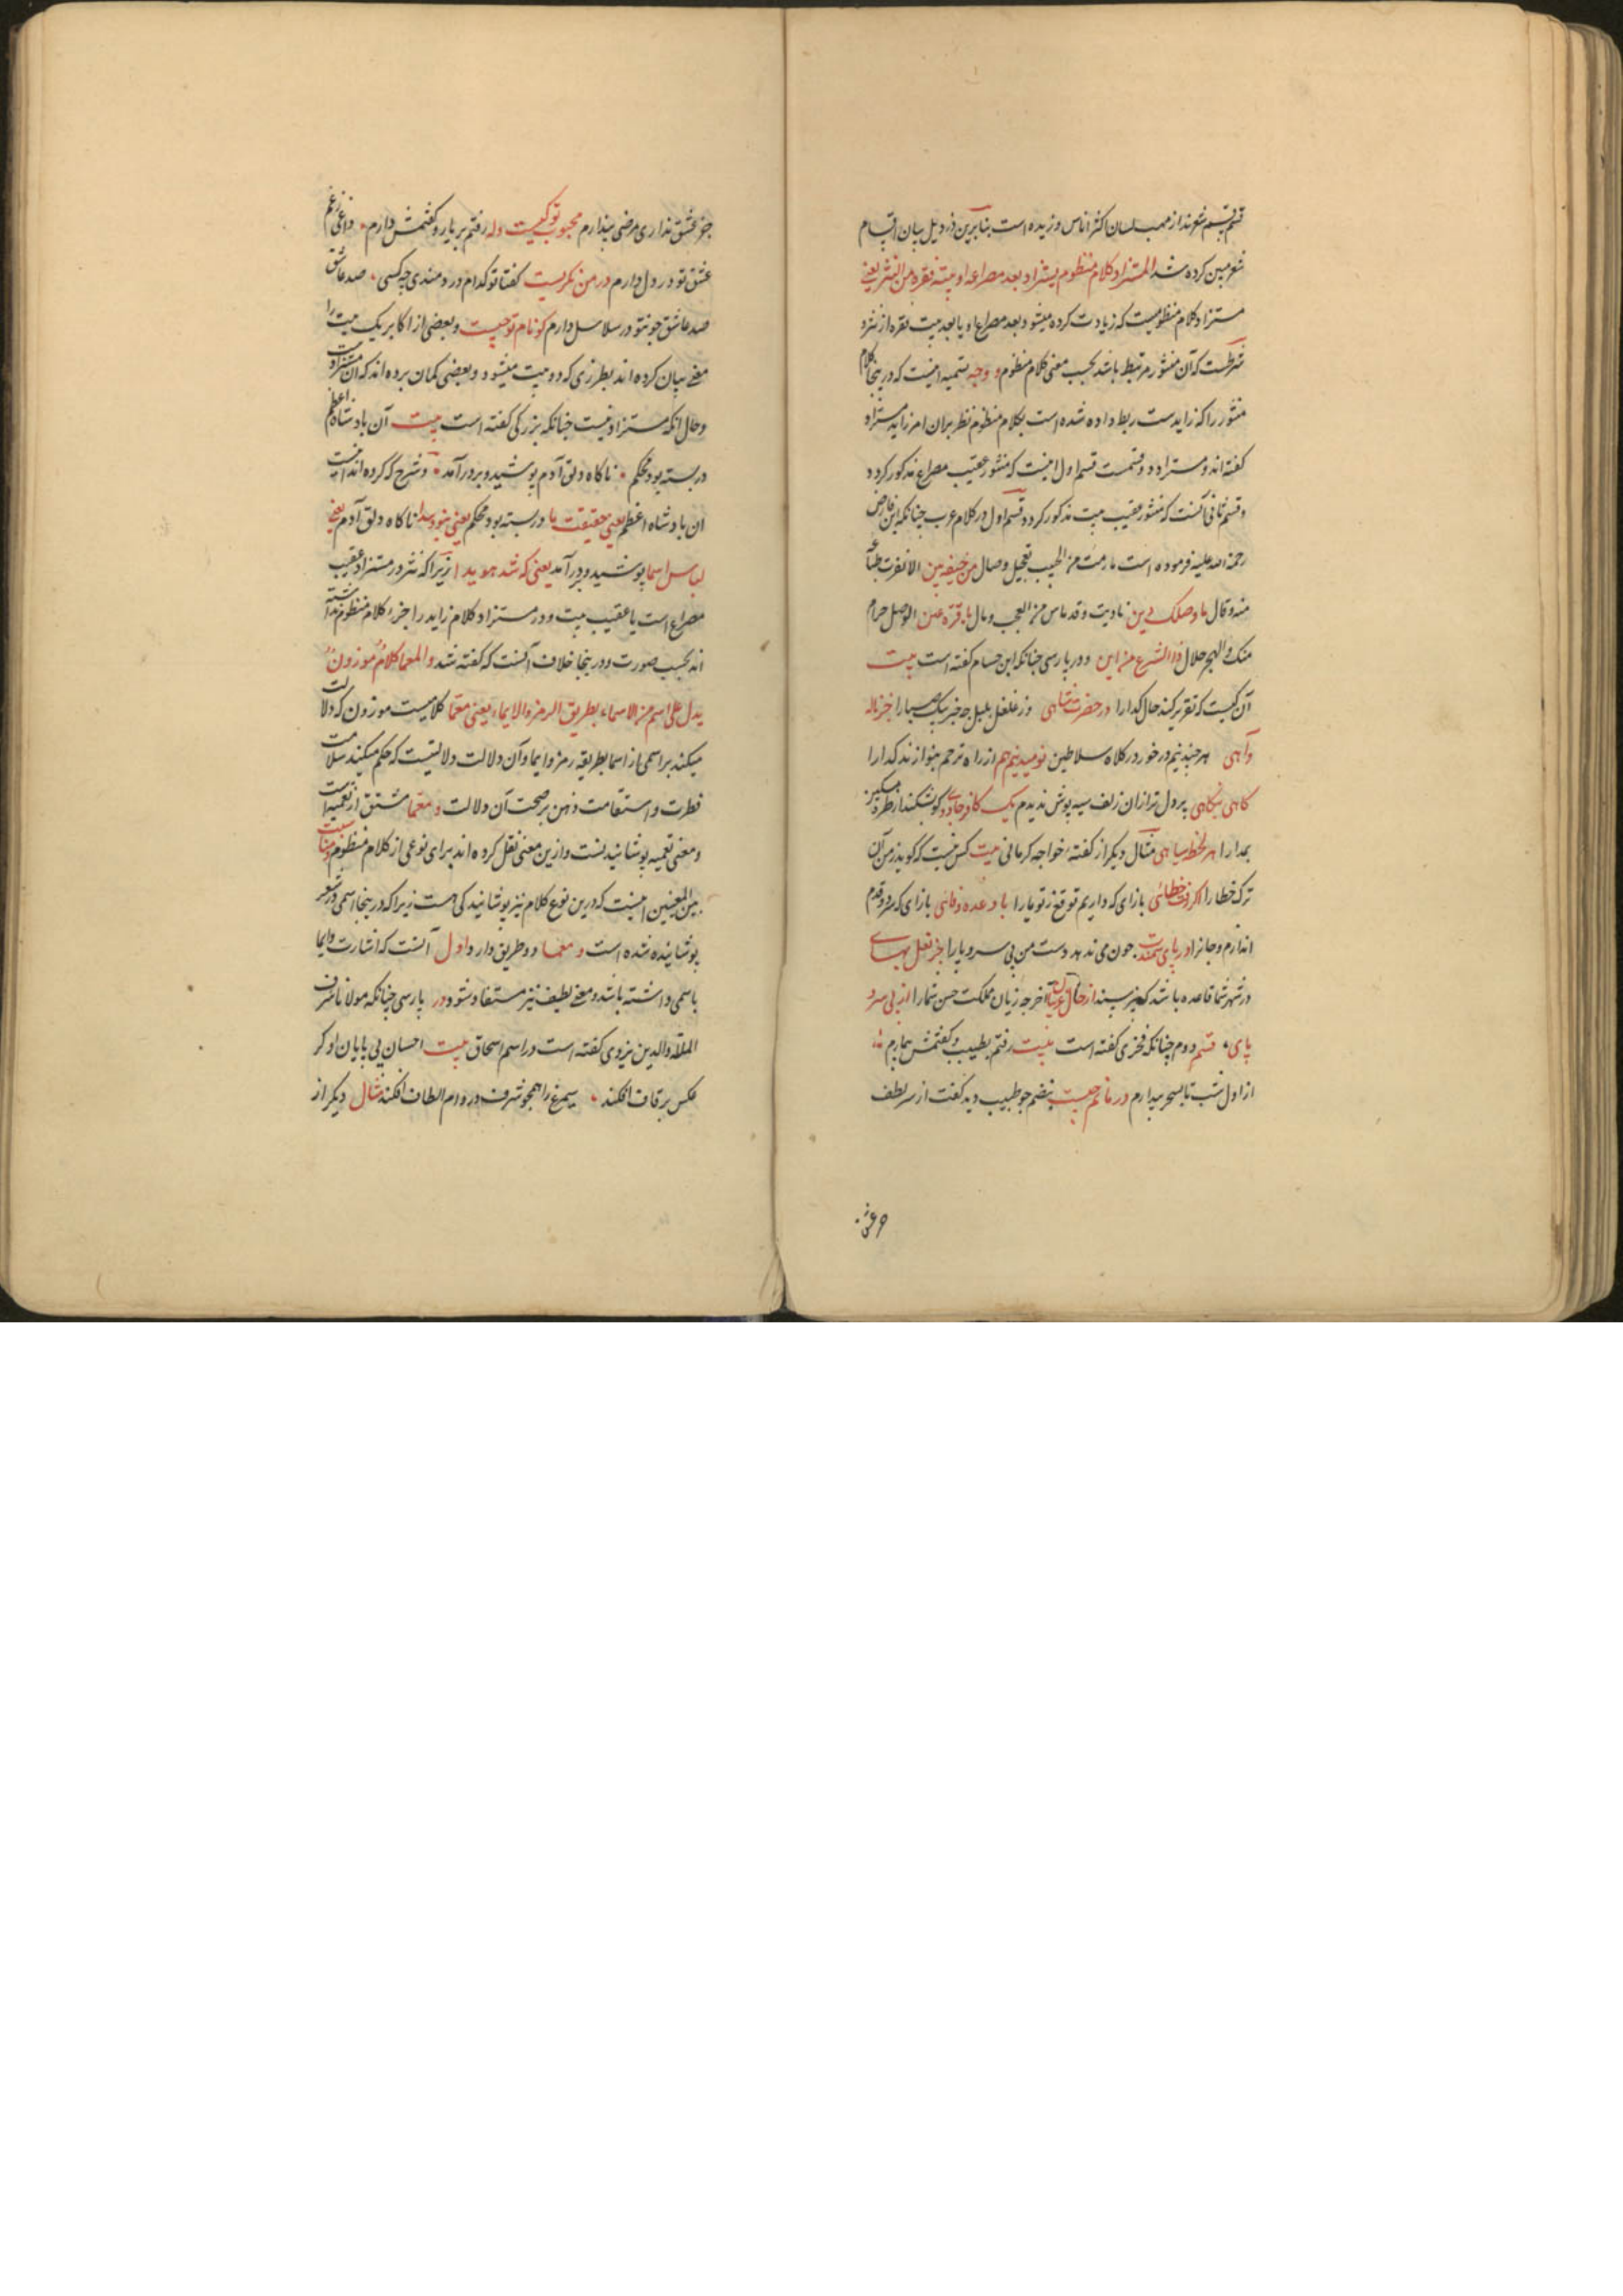 قسم قسیم شعرند از مهب لسان اکثر اناس وزیده است بنابرین در ذیل بیان اقسام
شعر مبین کرده شد المستزاد کلام منظوم یستزاد بعد مصراعه او بیته فقره من النثر یعنی
مستزاد کلام منظومیست که زیادت کرده میشود بعد مصراع او یا بعد بیت فقره از نثر و
شرطست که آن منثور مرتبط باشد بحسب معنی کلام منظوم و وجه تسمیه اینست که درینجا کلام
منثور را که زایدست ربط داده شده است بکلام منظوم نظر بران امر زاید مستزاد
کفته اند و مستزاد دو قسمت قسم اول اینست که منثور عقیب مصراع مذکور کردد
و قسم ثانی آنست که منثور عقیب بیت مذکور کردد قسم اول در کلام عرب چنانکه ابن فارض
رحمة الله علیه فرموده است مارمت من الحبیب تعجیل وصال من خیفة بین الا نفرت طبآ
منه وقال ما وصلک دین نادیت وقد ماس من العجب ومال یا قرة عین الوصل حرام
منک والهجر حلال ذا الشرع من این و در پارسی چنانکه ابن حسام کفته است بیت
آن کیست که تقریر کند حال کدا را در حضرت شاهی وز غلغل بلبل چه خبر پیک صبا را جز ناله
وآهی هر چند نیم در خور درکاه سلاطین نومید نیم هم از راه ترحم بنوازند کدا را
کاهی بنکاهی پر دل تر ازان زلف سیه پوش ندیدم یک کافر جادو کو بشکند از طره مسکین
بمدارا هر لحظه سپاهی مثال دیکر از کفته خواجه کرمانی بیت کس نیست که کوید ز من آن
ترک خطا را کر رفت خطائی باز آی که داریم توقع ز تو یارا با وعده وفائی باز آی که سر در قدم
اندازم و جانرا در پای سمندت چون می ندهد دست من بی سرو پا را جز نعل بهای
در شهر شما قاعده باشد که نپرسند از حال غریبان آخر چه زیان مملکت حسن شما را از بی سر و
پای قسم دوم چنانکه فخری کفته است بیت رفتم بطبیب و کفتمش بیمارم
از اول شب تا بسحر بیدارم درمانم چیست نبضم چو طبیب دید کفت از سر لطف
جز عشق نداری مرضی پندارم محبوب تو کیست وله رفتم بر یار و کفتمش دارم داغی ز غم
عشق تو در دل دارم در من نکریست کفتا تو کدام دردمندی چه کسی صد عاشق
صد عاشق چو تو در سلاسل دارم کو نام تو چیست و بعضی از اکابر یک بیت را
معنی بیان کرده اند بطرزی که دو بیت میشود و بعضی کمان برده اند که آن مستزادست
و حال آنکه مستزاد نیست چنانکه بزرکی کفته است بیت آن پادشاه اعظم
در بسته بود محکم ناکاه دلق آدم پوشید و بر در آمد و شرح که کرده اند اینست
ان پادشاه اعظم یعنی حقیقت ما در بسته بود محکم یعنی نبود پیدا ناکاه دلق آدم یعنی
لباس اسما پوشید و بر در آمد یعنی که شد هویدا زیرا که نثر در مستزاد عقیب
مصراع است یا عقیب بیت و در مستزاد کلام زاید را جزء کلام منظوم نداشته
اند بحسب صورت و درینجا خلاف آنست که کفته شد والمعما کلام موزون
یدل علی اسم من الاسماء بطریق الرمز والایماء یعنی معما کلامیست موزون که دلالت
میکند بر اسمی از اسما بطریقه رمز و ایما و آن دلالت دلالتیست که حکم میکند سلامت
فطرت و استقامت ذهن بر صحت آن دلالت و معما مشتق از تعمیه است
و معنی تعمیه پوشانیدنست و ازین معنی نقل کرده اند برای نوعی از کلام منظوم و مناسبت
بین المعنیین اینست که درین نوع کلام نیز پوشانیدکی هست زیرا که درینجا اسمی در شعر
پوشانیده شده است و معما دو طریق دارد اول آنست که اشارت و ایما
باسمی داشته باشد و معنی لطیف نیز مستفاد شود در پارسی چنانکه مولانا شرف
الملة والدین یزدی کفته است در اسم اسحاق بیت احسان بی پایان او کر
عکس بر قاف افکند سیمرغ را همچو شرف در دام الطاف افکند مثال دیکر از